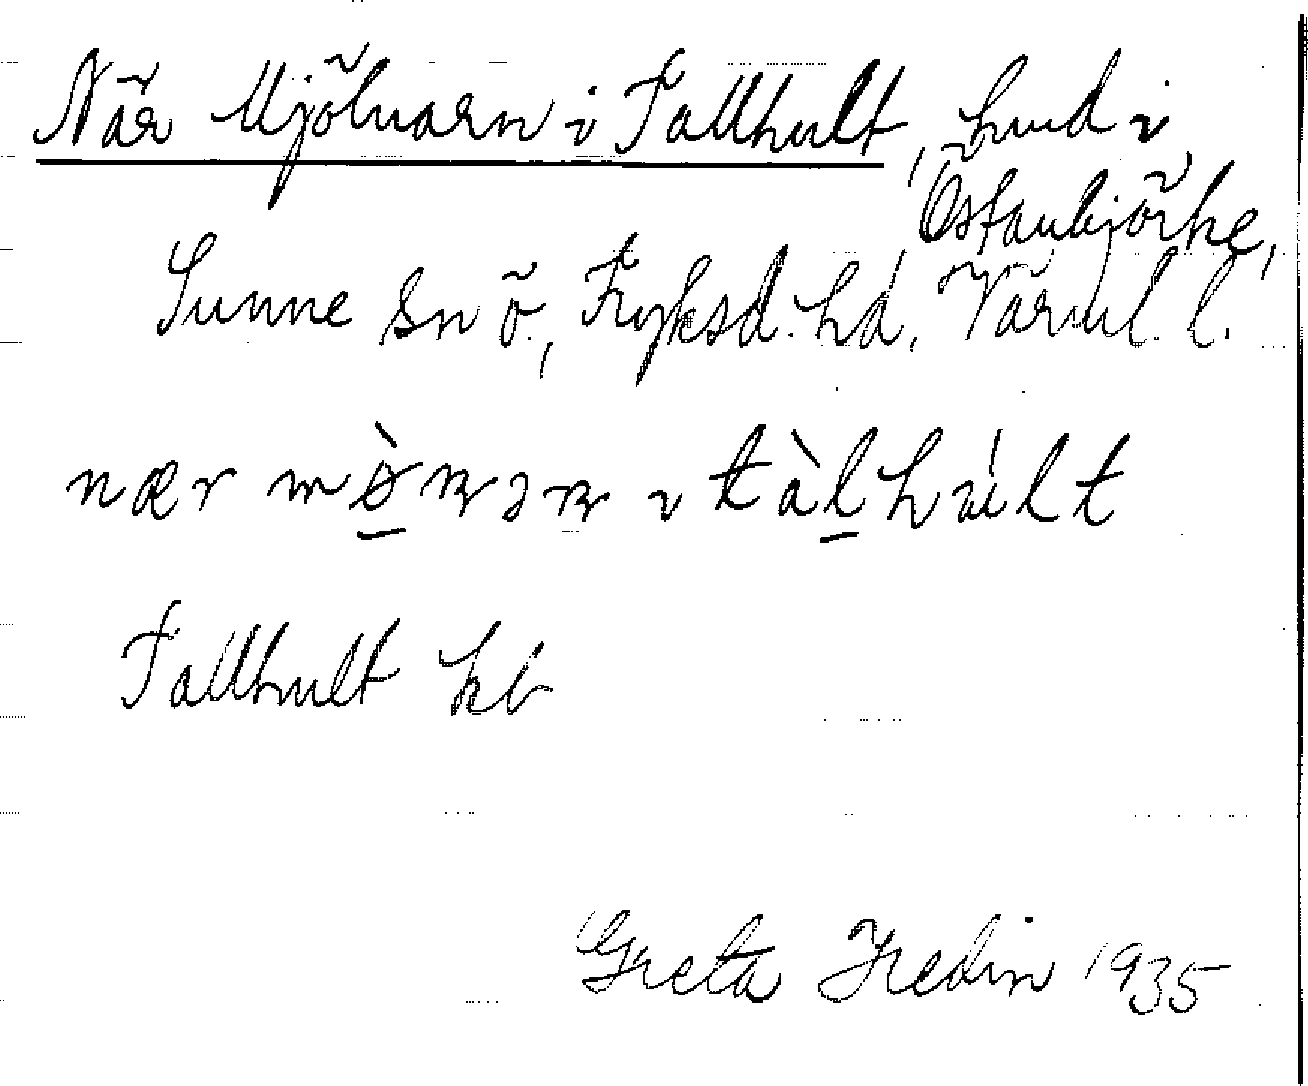 När Mjölnarn i Tallhult, hmd i
Östanbjörke,
Sunne sn ö, Fryksd. hd, Värml. l.
nær i tàlhúlt
Tallhult kb
Greta Hedin 1935